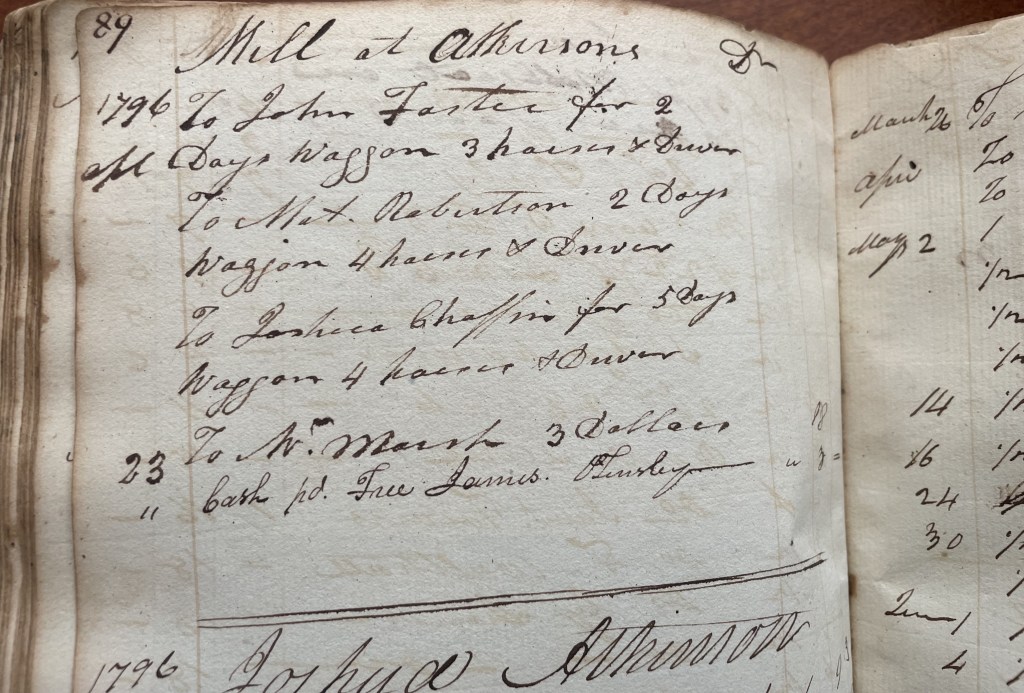 89
Mill at Atkinsons Dr
1796 To John Foster for 2
Apl Days Waggon 3 horses & Driver
To Mat. Robertson 2 Days
Waggon 4 horses & Driver
To Joshua Chaffin for 5 Days
Waggon 4 horses & Driver
23 To Wr. Marsh 3 Dollars 18
" Cash pd. Free James. " 3 =
1796 Joshua Atkinson
March 26 To
Apri To
To
May 2 1
14
16
24
30
June 1
4